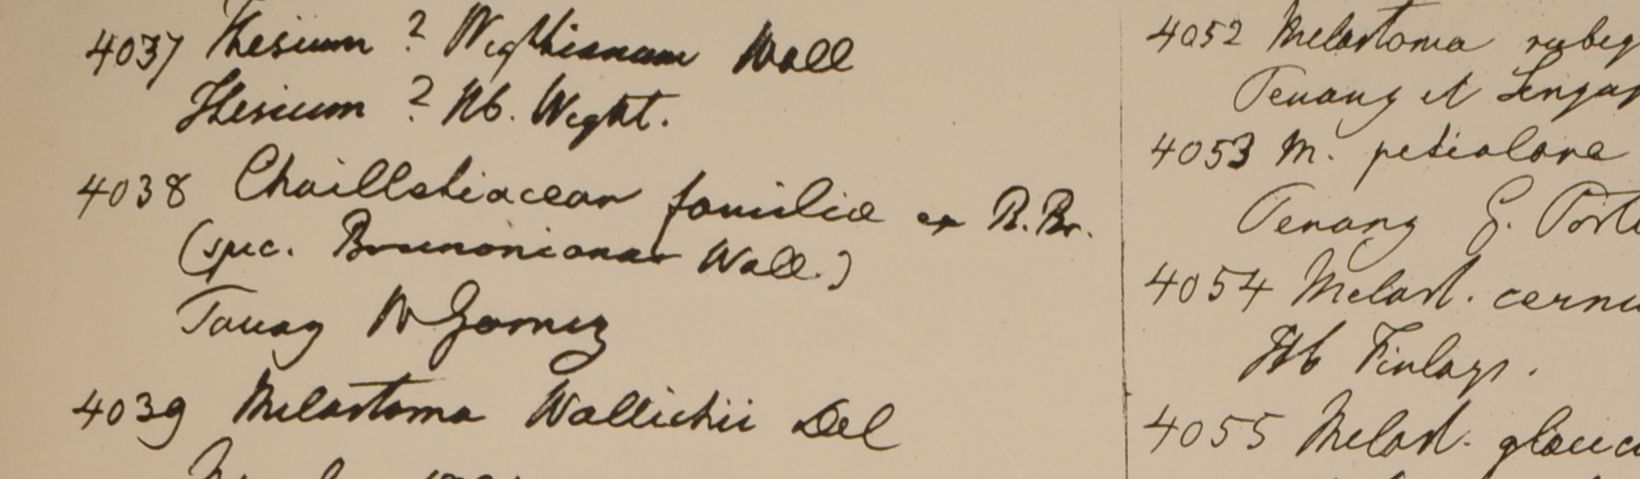 4037 Thesium ? Wightianum Wall
Thesium ? Hb. Wight.
4038 Chailletiacear familia ex R. Br.
(spec. Brunoniana Wall.)
Tavay W Gomez
4039 Melastoma Wallichii Del
4052 Melastoma rubig
Penang et Singap
4053 M. petiolare
Penang G. Porte
4054 Melast. cernu
Hb Finlays.
4055 Melast. glauc